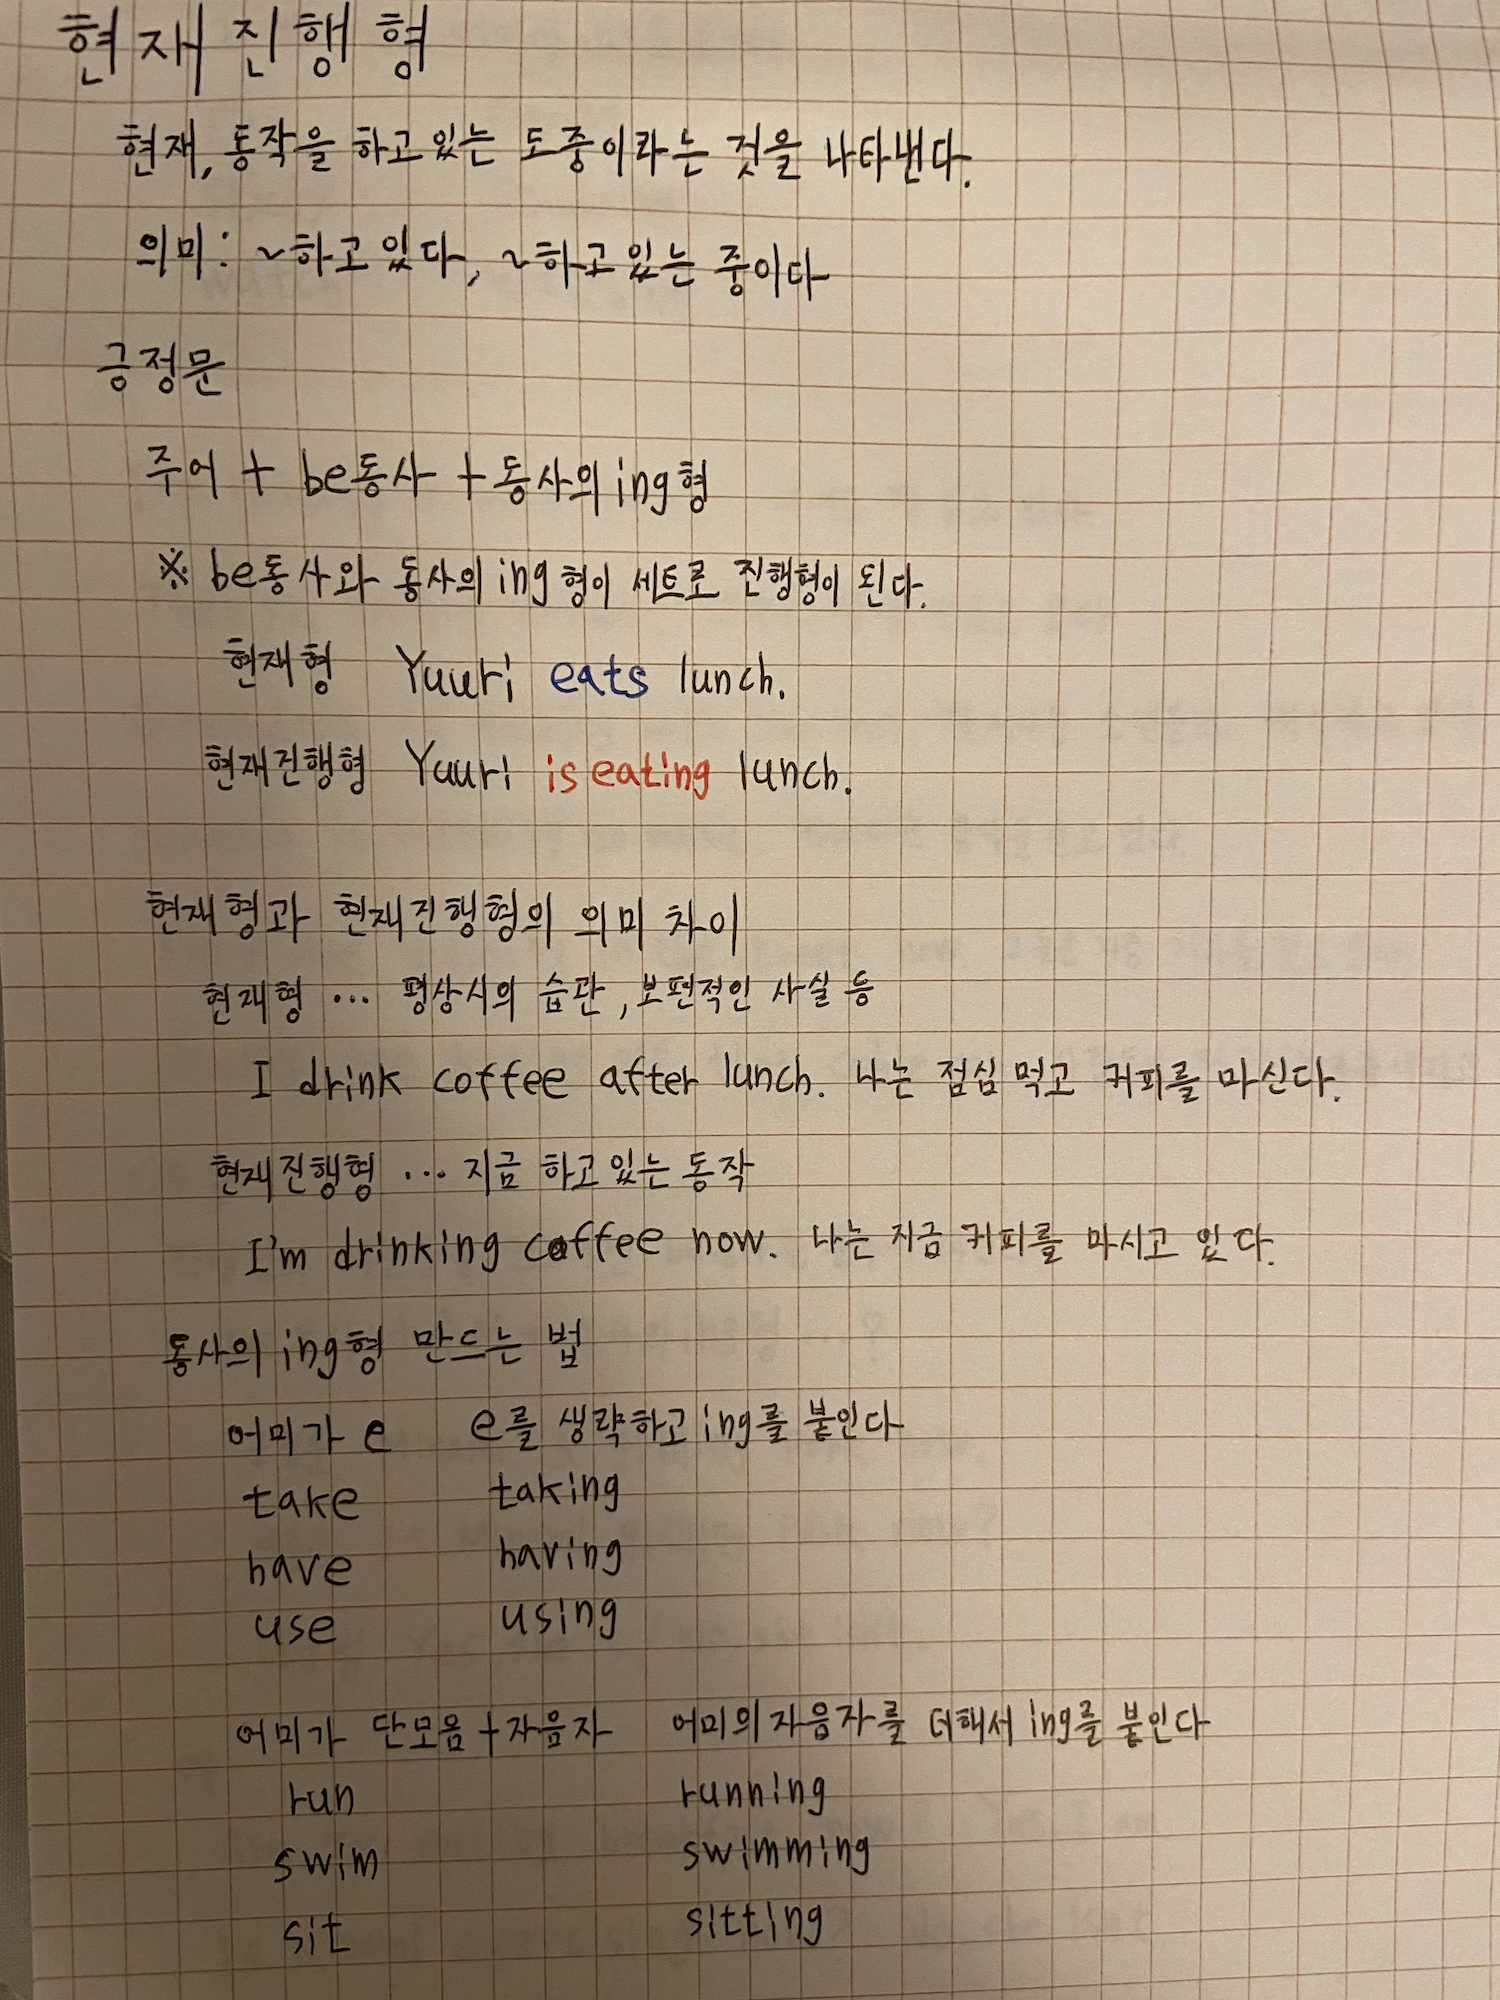 현재진행형
현재, 동작을 하고 있는 도중이라는 것을 나타낸다.
의미: ~하고 있다, ~하고 있는 중이다
긍정문
주어 + be동사 + 동사의 ing형
※ be동사와 동사의 ing형이 세트로 진행형이 된다.
현재형 Yuuri eats lunch.
현재진행형 Yuuri is eating lunch.
현재형과 현재진행형의 의미 차이
현재형 … 평상시의 습관, 보편적인 사실 등
I drink coffee after lunch. 나는 점심 먹고 커피를 마신다.
현재진행형 … 지금 하고 있는 동작
I'm drinking coffee now. 나는 지금 커피를 마시고 있다.
동사의 ing형 만드는 법
어미가 e e를 생략하고 ing를 붙인다
take taking
have having
use using
어미가 단모음+자음자 어미의 자음자를 더해서 ing를 붙인다
run running
swim swimming
sit sitting